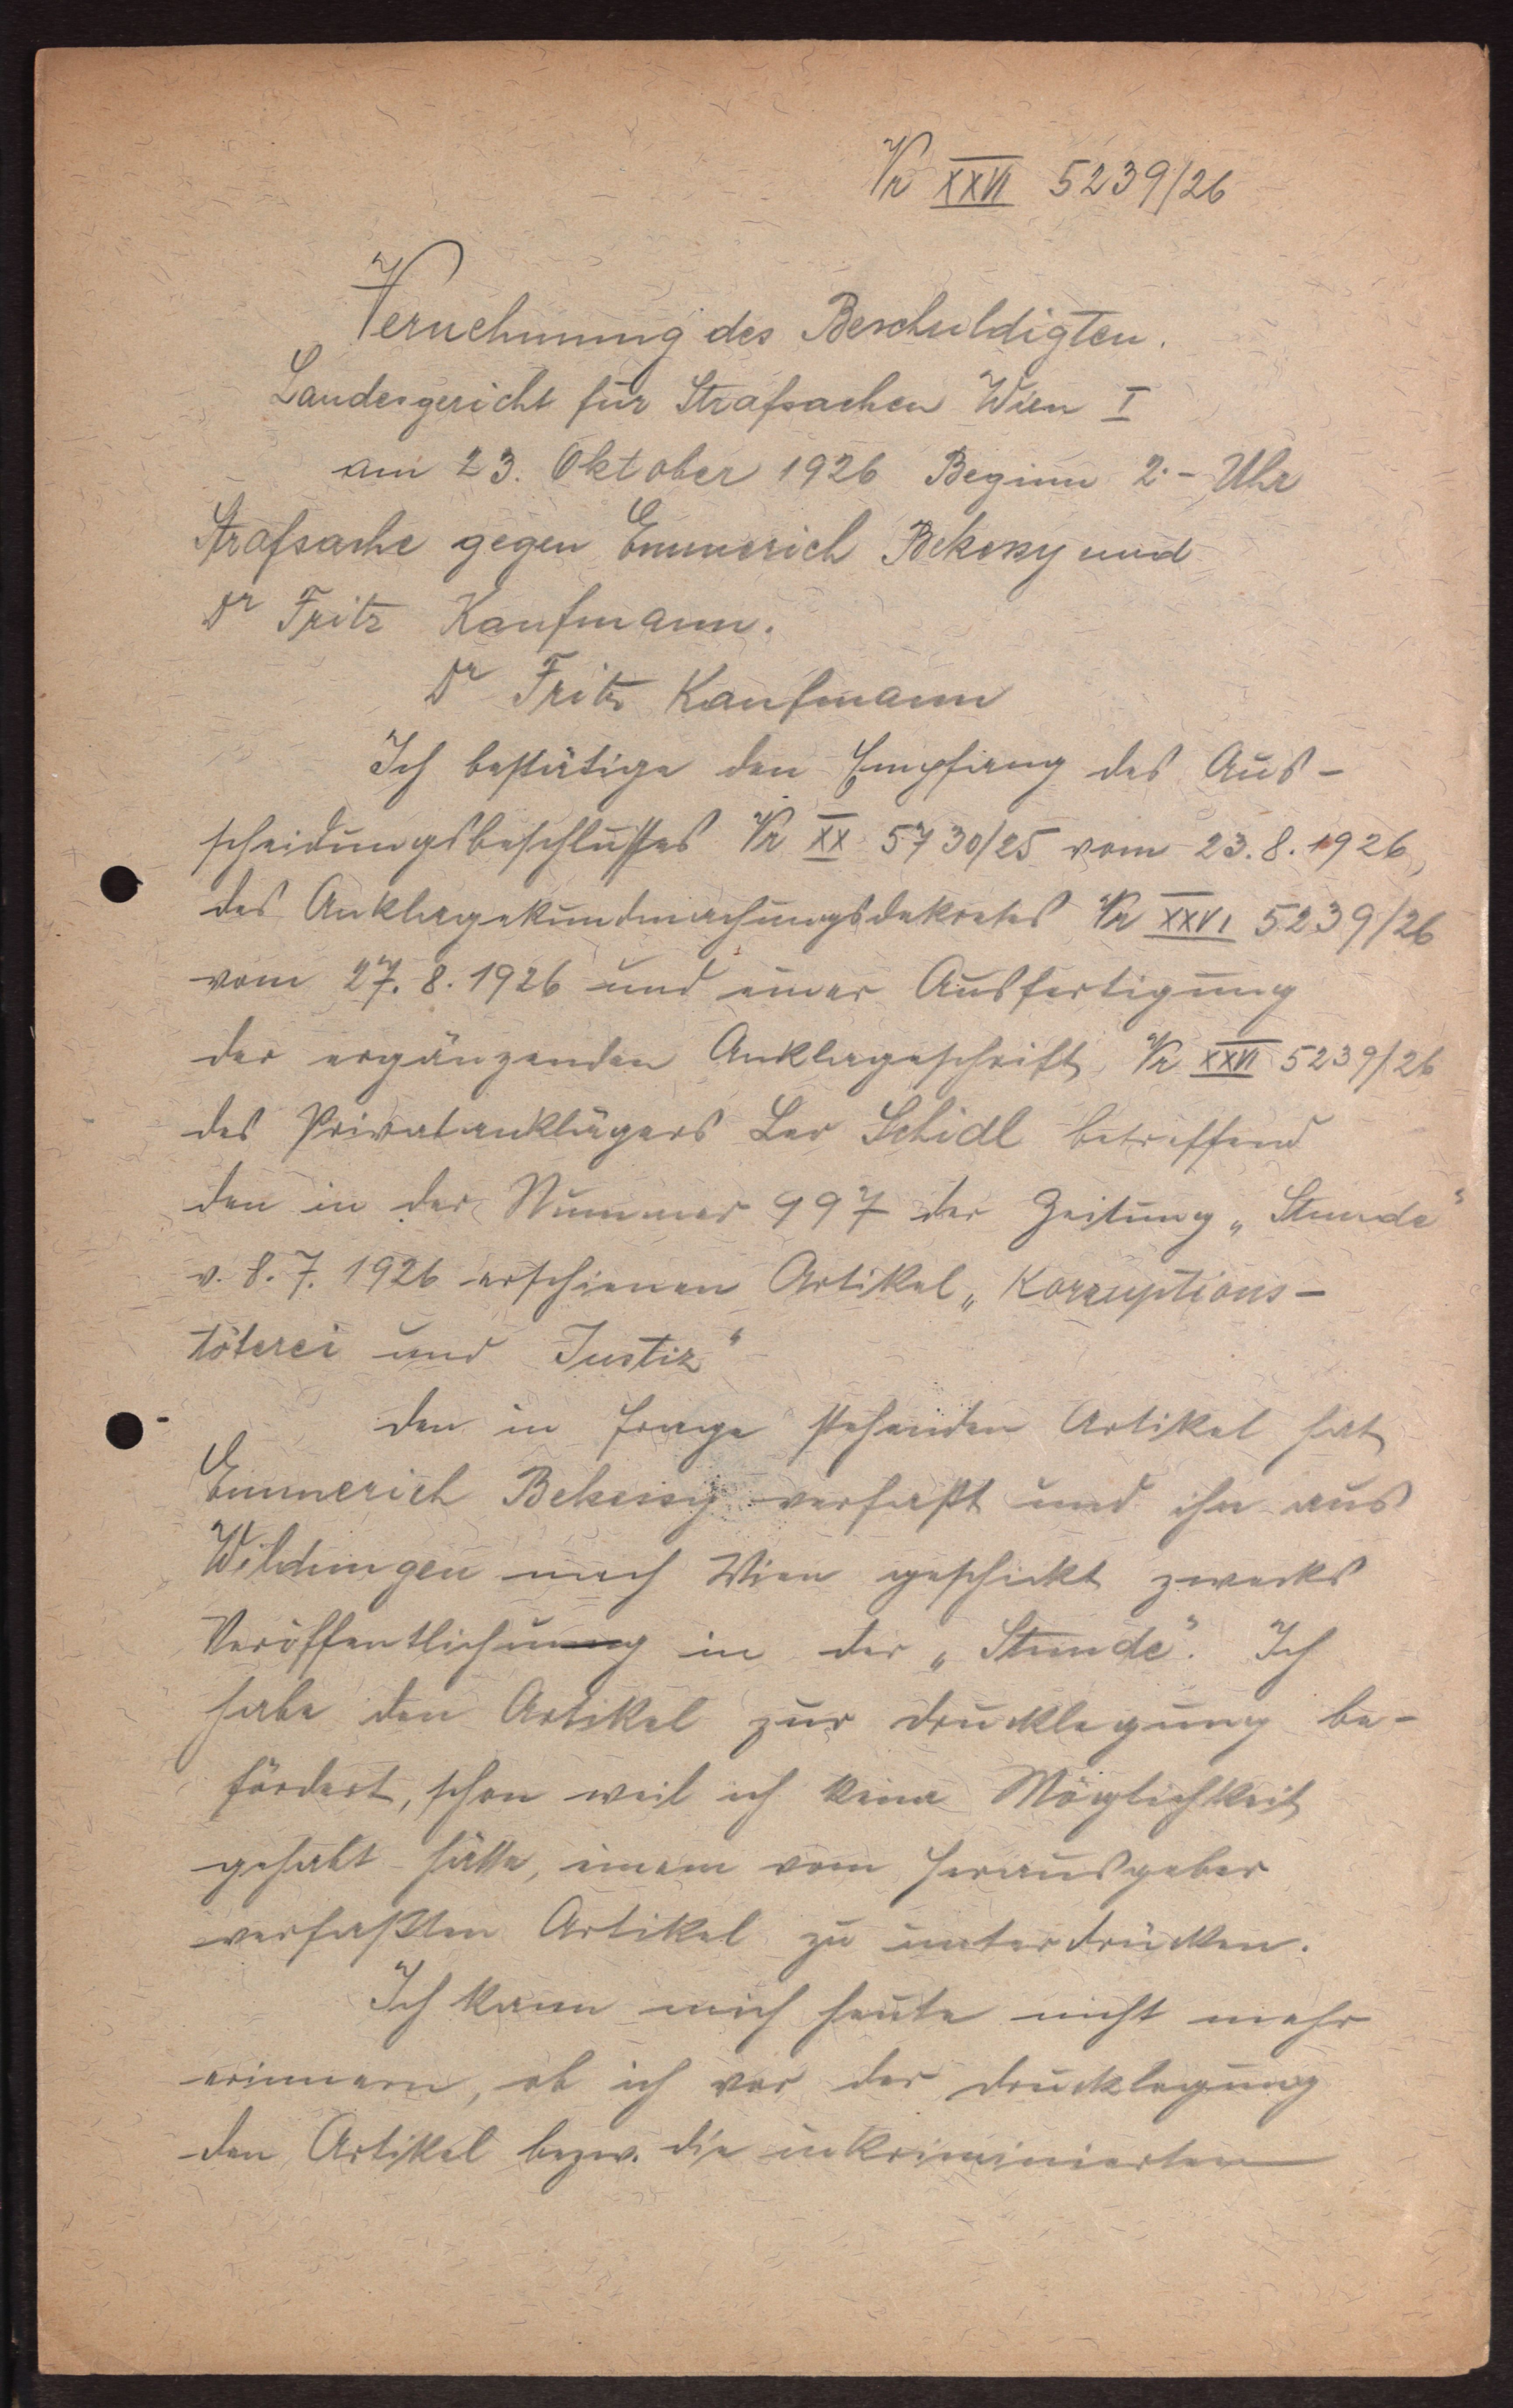 Vr XXVI 5239/26
Vernehmung des Beschuldigten.
Landesgericht für Strafsachen Wien I
am 23. Oktober 1926 Beginn 2.- Uhr
Strafsache gegen Emmerich Bekessy und
Dr Fritz Kaufmann.
Dr Fritz Kaufmann
Ich bestätige den Empfang des Aus-
scheidungsbeschlusses Vr XX 5730/25 vom 23.8.1926,
des Anklagekundmachungsdekretes Vr XXVI 5239/26
vom 27.8.1926 und einer Ausfertigung
der ergänzenden Anklageschrift Vr XXVI 5239/26
des Privatanklägers Leo Schidl betreffend
den in der Nummer 997 der Zeitung „Stunde“
v. 8.7.1926 erschienen Artikel „Korruptions-
töterei und Justiz“
Den in Frage stehenden Artikel hat
Emmerich Bekessy verfaßt und ihn aus
Wildungen nach Wien geschickt zwecks
Veröffentlichung in der „Stunde“. Ich
habe den Artikel zur Drucklegung be-
fördert, schon weil ich keine Möglichkeit
gehabt hätte, einem vom Herausgeber
verfaßten Artikel zu unterdrücken.
Ich kann mich heute nicht mehr
erinnern, ob ich vor der Drucklegung
den Artikel bezw. die inkriminierten